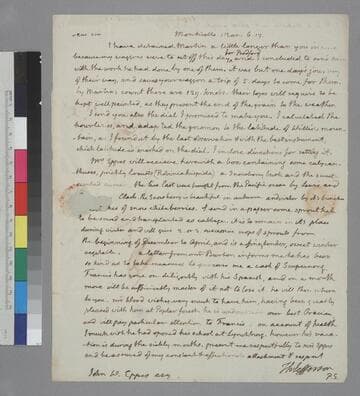 Dear Sir Monticello Mar. 6. 17.
I have detained Martin a little longer than you
because my waggons were to set off this day for Bedford, and I concluded to send
with the work he had done by one of them. it was but one day's journey
of their way, and saves your waggon a trip of 5. days to come for them.
by Martin's count there are 129 knobs. their tops will require to be
kept well painted, as they present the end of the grain to the weather.
I send you also the dial I promised to make you. I calculated the
hour lines, and adapted the gnomon to the latitude of Willis's moun-
-tain, as I found it by the last observation with the best instrument
which latitude is marked on the dial. I inclose directions for setting it.
Mrs Eppes will recieve herewith a box containing some calycan-
thuses, prickly locusts (Robinia hispida) a snowberry bush and the sweet
scented currant. the two last were brought from the Pacific ocean by Lewis and
Clark. the snowberry is beautiful in autumn and winter by its bunch
es of snow white berries. I send in a paper some sprout kale
to be sowed and transplanted as cabbage. it is to remain in its place
during winter and will give 2. or 3. successive crops of sprouts from
the beginning of December to April, and is a fine, tender, sweet winter
vegetable. a letter from
so kind as to take measures to
Francis has gone on diligently with his Spanish, and in a month
more will be sufficiently master of it not to lose it. he will then return
to you. mr Wood wishes very much to have him, having been greatly
pleased with him at Poplar Forest. he is our best Grecian
and will pay particular attention to Francis. on account of health
I much wish he had opened his school at Lynchburg. however his vaca-
tion is during the sickly months. present me respectfully to mrs Eppes
and be assured of my constant & affectionate attachment & respect
Th: Jefferson
John W. Eppes esq. P.S.